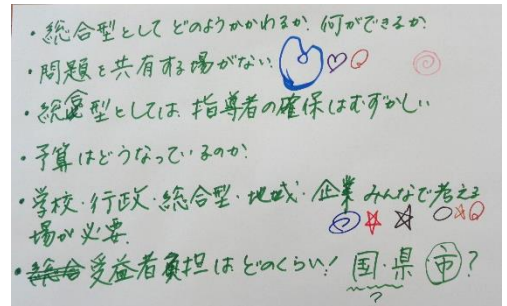 ・総合型として どのようかかわるか. 何ができるか.
・問題を共有する場がない.
・総合型としては 指導者の確保はむずかしい
・予算はどうなっているのか.
・学校・行政・総合型・地域・企業 みんなで考える
場が必要.
・総合 受益者負担はどのくらい! 国・県 市?
?